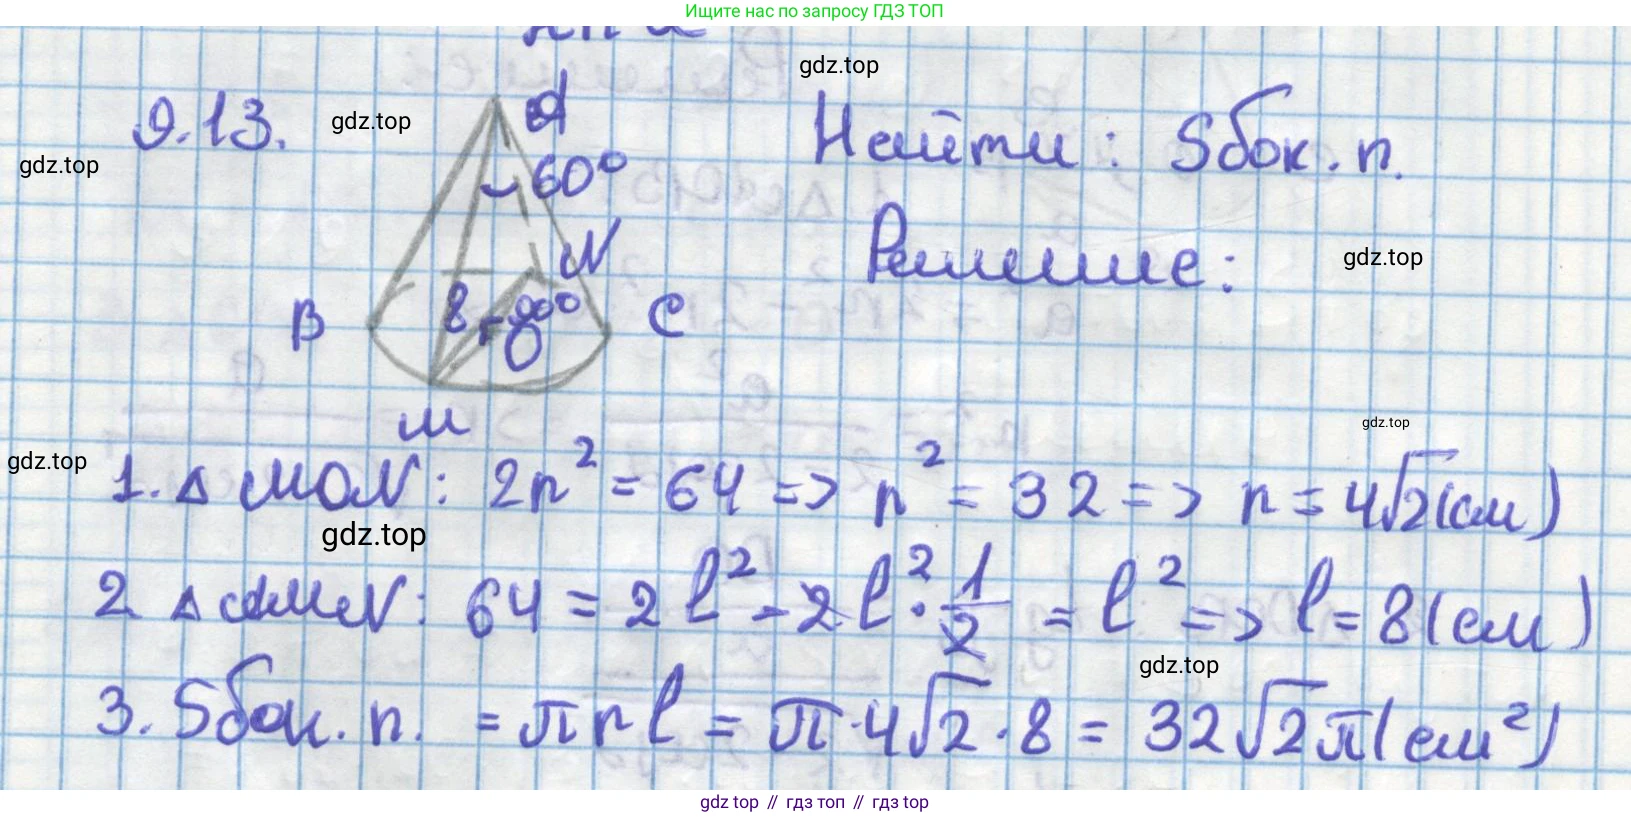 Ищите нас по запросу ГДЗ ТОП
gdz.top
9.13.
gdz.top
A
Найти: Sбок.п.
gdz.top
60°
N
Решение:
gdz.top
B
8
90°
C
O
M
gdz.top
gdz.top
1. Δ MON: 2r² = 64 => r² = 32 => r = 4√2(см)
gdz.top
2. Δ AMN: 64 = 2l² - 2l² · 1/2 = l² => l = 8(см)
gdz.top
3. Sбок.п. = πrl = π·4√2·8 = 32√2π(см²)
gdz.top // гдз топ // гдз top